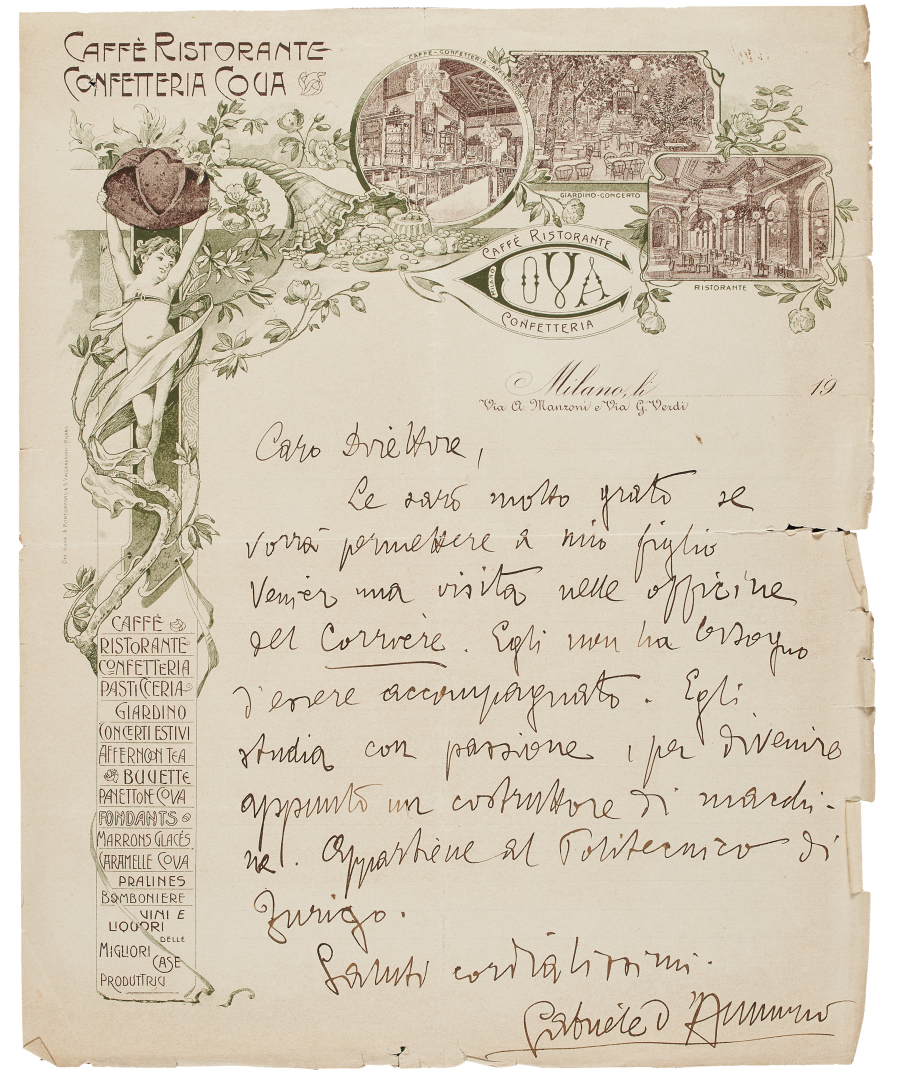 CAFFÈ RISTORANTE
CONFETTERIA COVA
CAFFÈ-CONFETTERIA
GIARDINO-CONCERTO
RISTORANTE
CAFFÈ RISTORANTE
MILANO
COVA
CONFETTERIA
Milano, li 19
Via A. Manzoni e Via G. Verdi
Caro Direttore,
Le sarò molto grato se
vorrà permettere a mio figlio
Venier una visita nelle officine
del Corriere. Egli non ha bisogno
d'essere accompagnato. Egli
studia con passione, per divenire
appunto un costruttore di macchi-
ne. Appartiene al Politecnico di
Zurigo.
Saluti cordialissimi.
Gabriele d'Annunzio
CAFFÈ
RISTORANTE
CONFETTERIA
PASTICCERIA
GIARDINO
CONCERTI ESTIVI
AFFERNOON TEA
BUVETTE
PANETTONE COVA
FONDANTS
MARRONS GLACÉS
CARAMELLE COVA
PRALINES
BOMBONIERE
VINI E
LIQUORI
DELLE
MIGLIORI
CASE
PRODUTTRICI